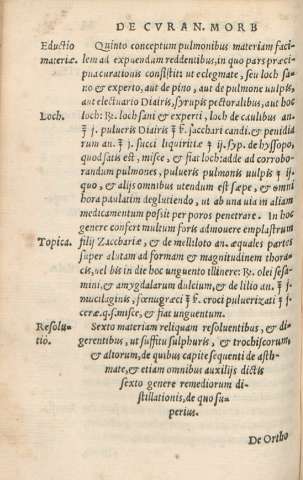 DE CVRAN. MORB
Eductio
materiæ.
Quinto conceptum pulmonibus materiam faci-
lem ad expuendum reddentibus, in quo pars præci-
pua curationis consistit ut eclegmate, seu loch sa-
no & experto, aut de pino, aut de pulmone uulpis,
aut electuario Diairis, syrupis pectoralibus, aut hoc
Loch.
loch: ℞. loch sani & experti, loch de caulibus an.
℥ j. pulueris Diaireis ℥ ß. sacchari candi. & penidia
rum an. ℥ j. succi liquiritiæ ʒ ij. syp. de hyssopo,
quod satis est, misce, & fiat loch: adde ad corrobo-
randum pulmones, pulueris pulmonis uulpis ʒ ij.
quo, & alijs omnibus utendum est sæpe, & omni
hora paulatim deglutiendo, ut ab una uia in aliam
medicamentum possit per poros penetrare. In hoc
genere confert multum foris admouere emplastrum
Topica.
filij Zacchariæ, & de melliloto an. æquales partes
super alutam ad formam & magnitudinem thora-
cis, uel bis in die hoc unguento illinere: ℞. olei sesa-
mini, & amygdalarum dulcium, & de lilio an. ℥ j.
mucilaginis, fœnugræci ℥ ß. croci puluerizati ʒ j.
ceræ. q. s. misce, & fiat unguentum.
Resolu-
tio.
Sexto materiam reliquam resoluentibus, & di-
gerentibus, ut suffitu sulphuris, & trochiscorum,
& altorum, de quibus capite sequenti de asth-
mate, & etiam omnibus auxilijs dictis
sexto genere remediorum di-
stillationis, de quo su-
perius.
De Ortho